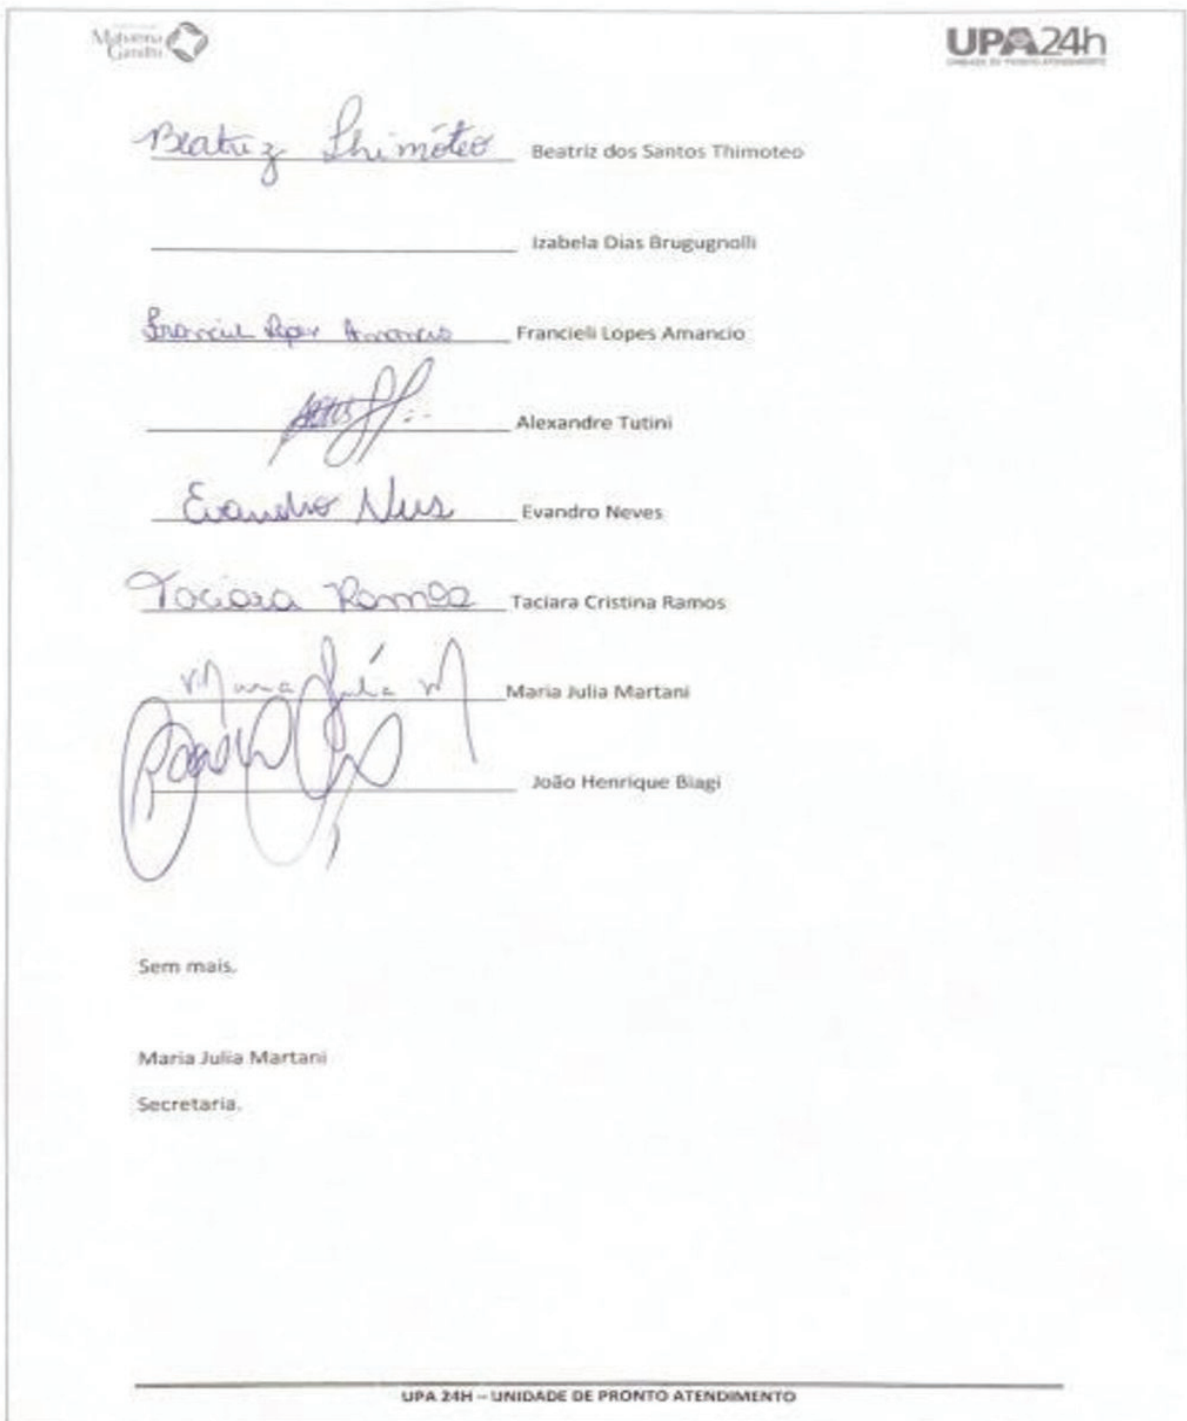 Mahatma
Gandhi
UPA24h
UNIDADE DE PRONTO ATENDIMENTO
Beatriz Thimóteo Beatriz dos Santos Thimoteo
Izabela Dias Brugugnolli
Francieli Lopes Amancio Francieli Lopes Amancio
Alexandre Tutini
Evandro Neves Evandro Neves
Taciara Ramos Taciara Cristina Ramos
Maria Julia M Maria Julia Martani
João Henrique Biagi
Sem mais.
Maria Julia Martani
Secretaria.
UPA 24H – UNIDADE DE PRONTO ATENDIMENTO